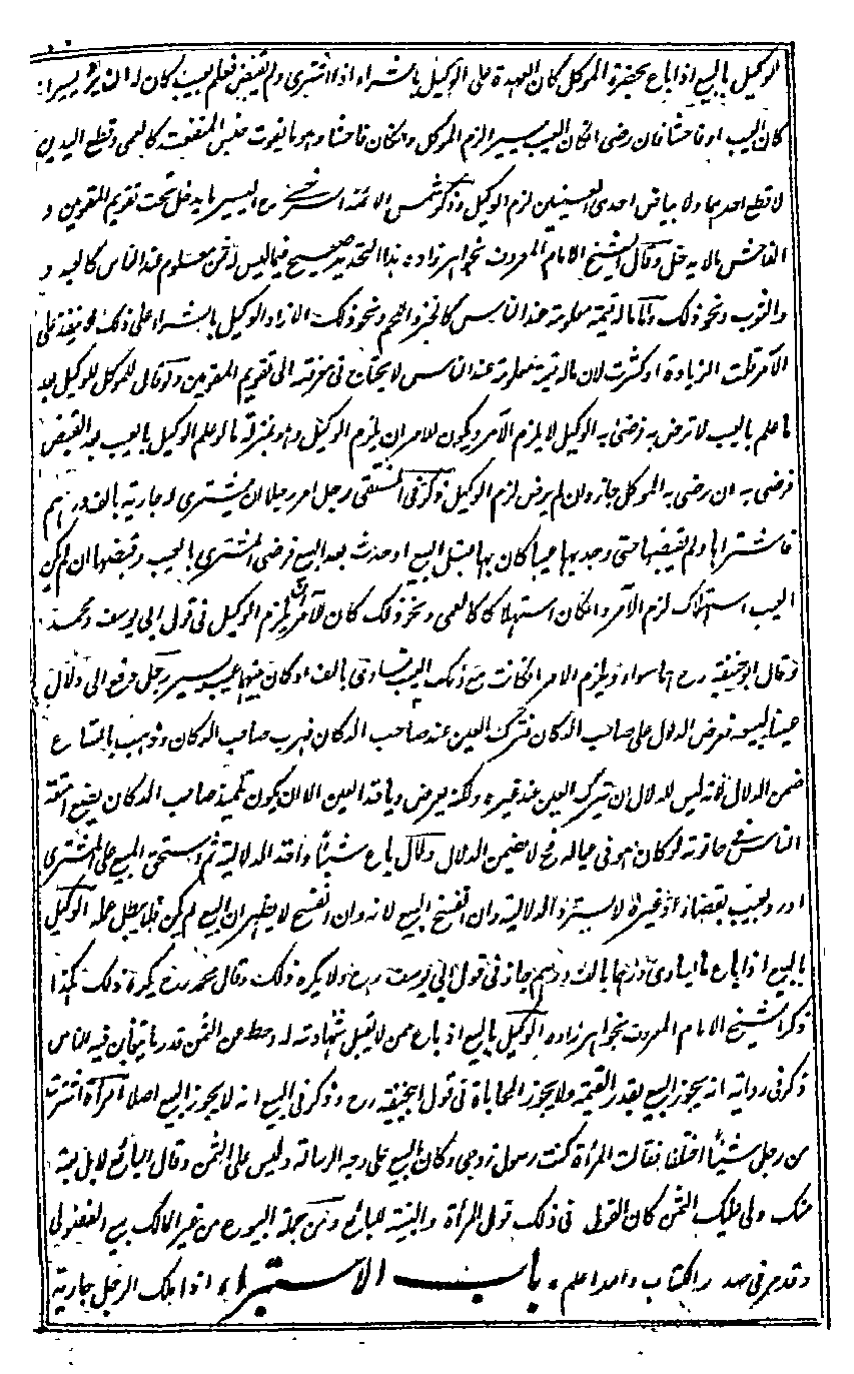 الوكيل بالبيع اذا باع بحضرة الموكل كان العهدة على الوكيل بالشراء اذا اشترى ولم يقبض فعلم بعيب كان له الرد يسيرا
كان العيب او فاحشا فان رضى ان كان العيب يسيرا لزم الموكل وان كان فاحشا وهو ما يفوت جنس المنفعت كالعمى وقطع اليدين
لا قطع احدهما ولا بياض احدى العينين لزم الوكيل وذكر شمس الائمة السرخسى رح اليسير ما يدخل تحت تقويم المقومين و
الفاحش ما لا يدخل وقال الشيخ الامام المعروف بخواهرزاده هذا التحديد صحيح فيما ليس له ثمن معلوم عند الناس كالعبد و
والثوب ونحو ذلك واما ما له قيمة معلومة عند الناس كالخبز واللحم ونحو ذلك اذا زاد الوكيل بالشراء على ذلك لا ينفذ على
الآمر قلت الزيادة او كثرت لان ما له قيمة معلومة عند الناس لا يحتاج فى معرفته الى تقويم المقومين ولو قال الموكل للوكيل بعد
ما علم بالعيب لا ترض به فرضى به الوكيل لا يلزم الآمر ويكون للامر ان يلزم الوكيل وهو بمنزلة ما لو علم الوكيل بالعيب بعد القبض
فرضى به ان رضى به الموكل جاز وان لم يرض لزم الوكيل ذكر فى المنتقى رجل امر رجلا ان يشترى له جارية بالف درهم
فاشتراها ولم يقبضها حتى وجد بها عيبا كان بها قبل البيع او حدث بعد البيع فرضى المشترى بالعيب وقبضها ان لم يكن
العيب استهلاك لزم الآمر وان كان استهلاكا كالعمى ونحو ذلك كان للآمر ان يلزم الوكيل فى قول ابى يوسف ومحمد
وقال ابو حنيفة رح هما سواء ويلزم الامر ان كانت مع ذلك العيب تساوى بالف او كان فيها عيب يسير رجل دفع الى دلال
عينا ليبيعه فعرض الدلال على صاحب الدكان فترك العين عند صاحب الدكان فهرب صاحب الدكان وذهب بالمتاع
ضمن الدلال لانه ليس للدلال ان يترك العين عند غيره ولكنه يعرض وياخذ العين الا ان يكون تلميذ صاحب الدكان يضع امتعة
الناس فى حانوته او كان هو فى عياله فح لا يضمن الدلال دلال باع شيئا واخذ الدلالية ثم استحق المبيع على المشترى
او رد بعيب بقضاء او غيره لا يسترد الدلالية وان انفسخ البيع لانه وان انفسخ لا يظهر ان البيع لم يكن فلا يبطل عمله الوكيل
بالبيع اذا باع ما يساوى درهما بالف درهم جاز فى قول ابى يوسف رح ولا يكره ذلك وقال محمد رح يكره ذلك هكذا
ذكر الشيخ الامام المعروف بخواهرزاده الوكيل بالبيع اذا باع ممن لا تقبل شهادته له وحط عن الثمن قدر ما يتغابن فيه الناس
ذكر فى رواية انه يجوز البيع بقدر القيمة ولا يجوز المحاباة فى قول ابيحنيفة رح وذكر فى البيع انه لا يجوز البيع اصلا امرأة اشترت
من رجل شيئا اختلفا فقالت المرأة كنت رسول زوجى وكان البيع على وجه الرسالة وليس على الثمن وقال البائع لا بل بعته
منك ولى عليك الثمن كان القول فى ذلك قول المرأة والبينة للبائع ومن جملة البيوع من غير المالك بيع الفضولى
وقد مر فى صدر الكتاب والله اعلم باب الاستبراء اذا ملك الرجل جارية